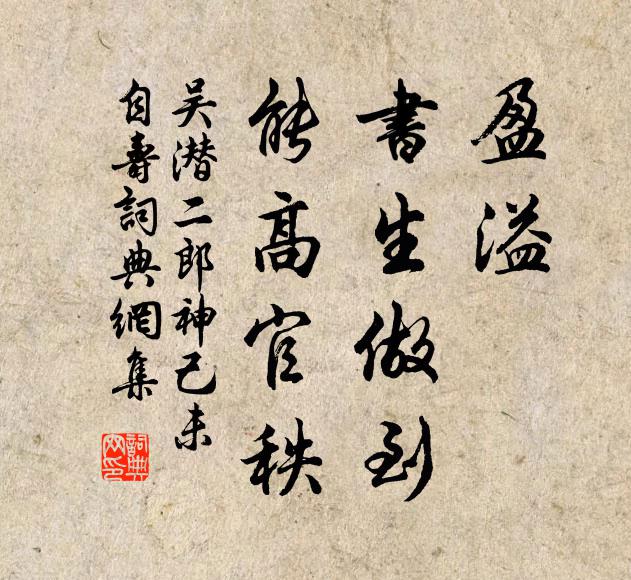 盈溢
書生做到
能高官秩
吴潜二郎神己未
自壽詞典網集
詞典
网印